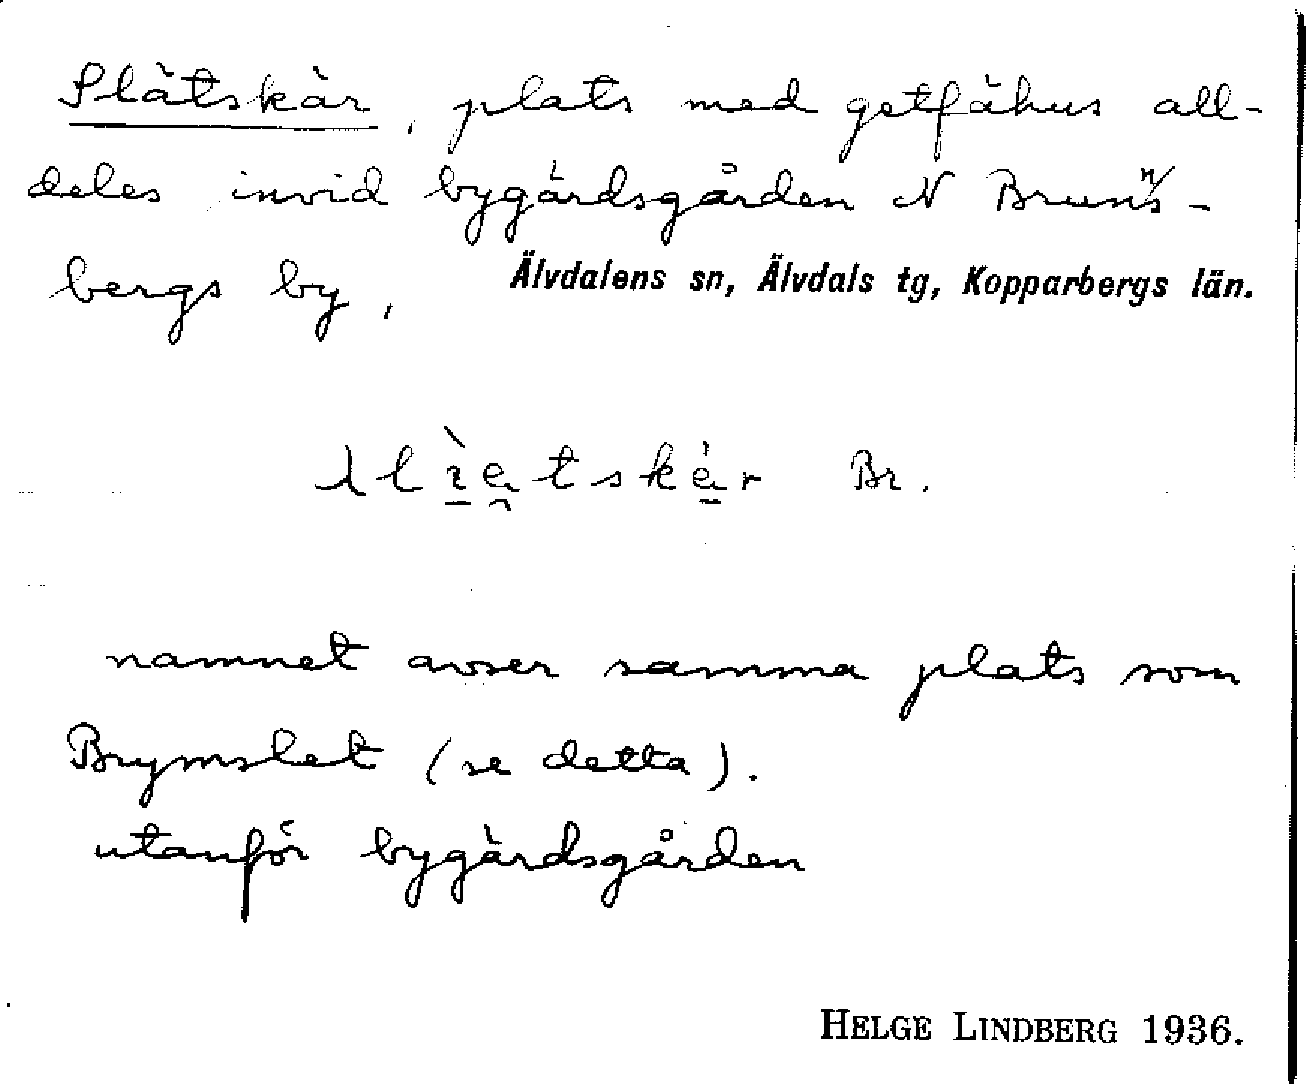 Slätskär, plats med getfähus all-
deles invid bygärdsgården N Bruns-
bergs by, Älvdalens sn, Älvdals tg, Kopparbergs län.
Br.
namnet avser samma plats som
Brymslet (se detta).
utanför bygärdsgården
HELGE LINDBERG 1936.